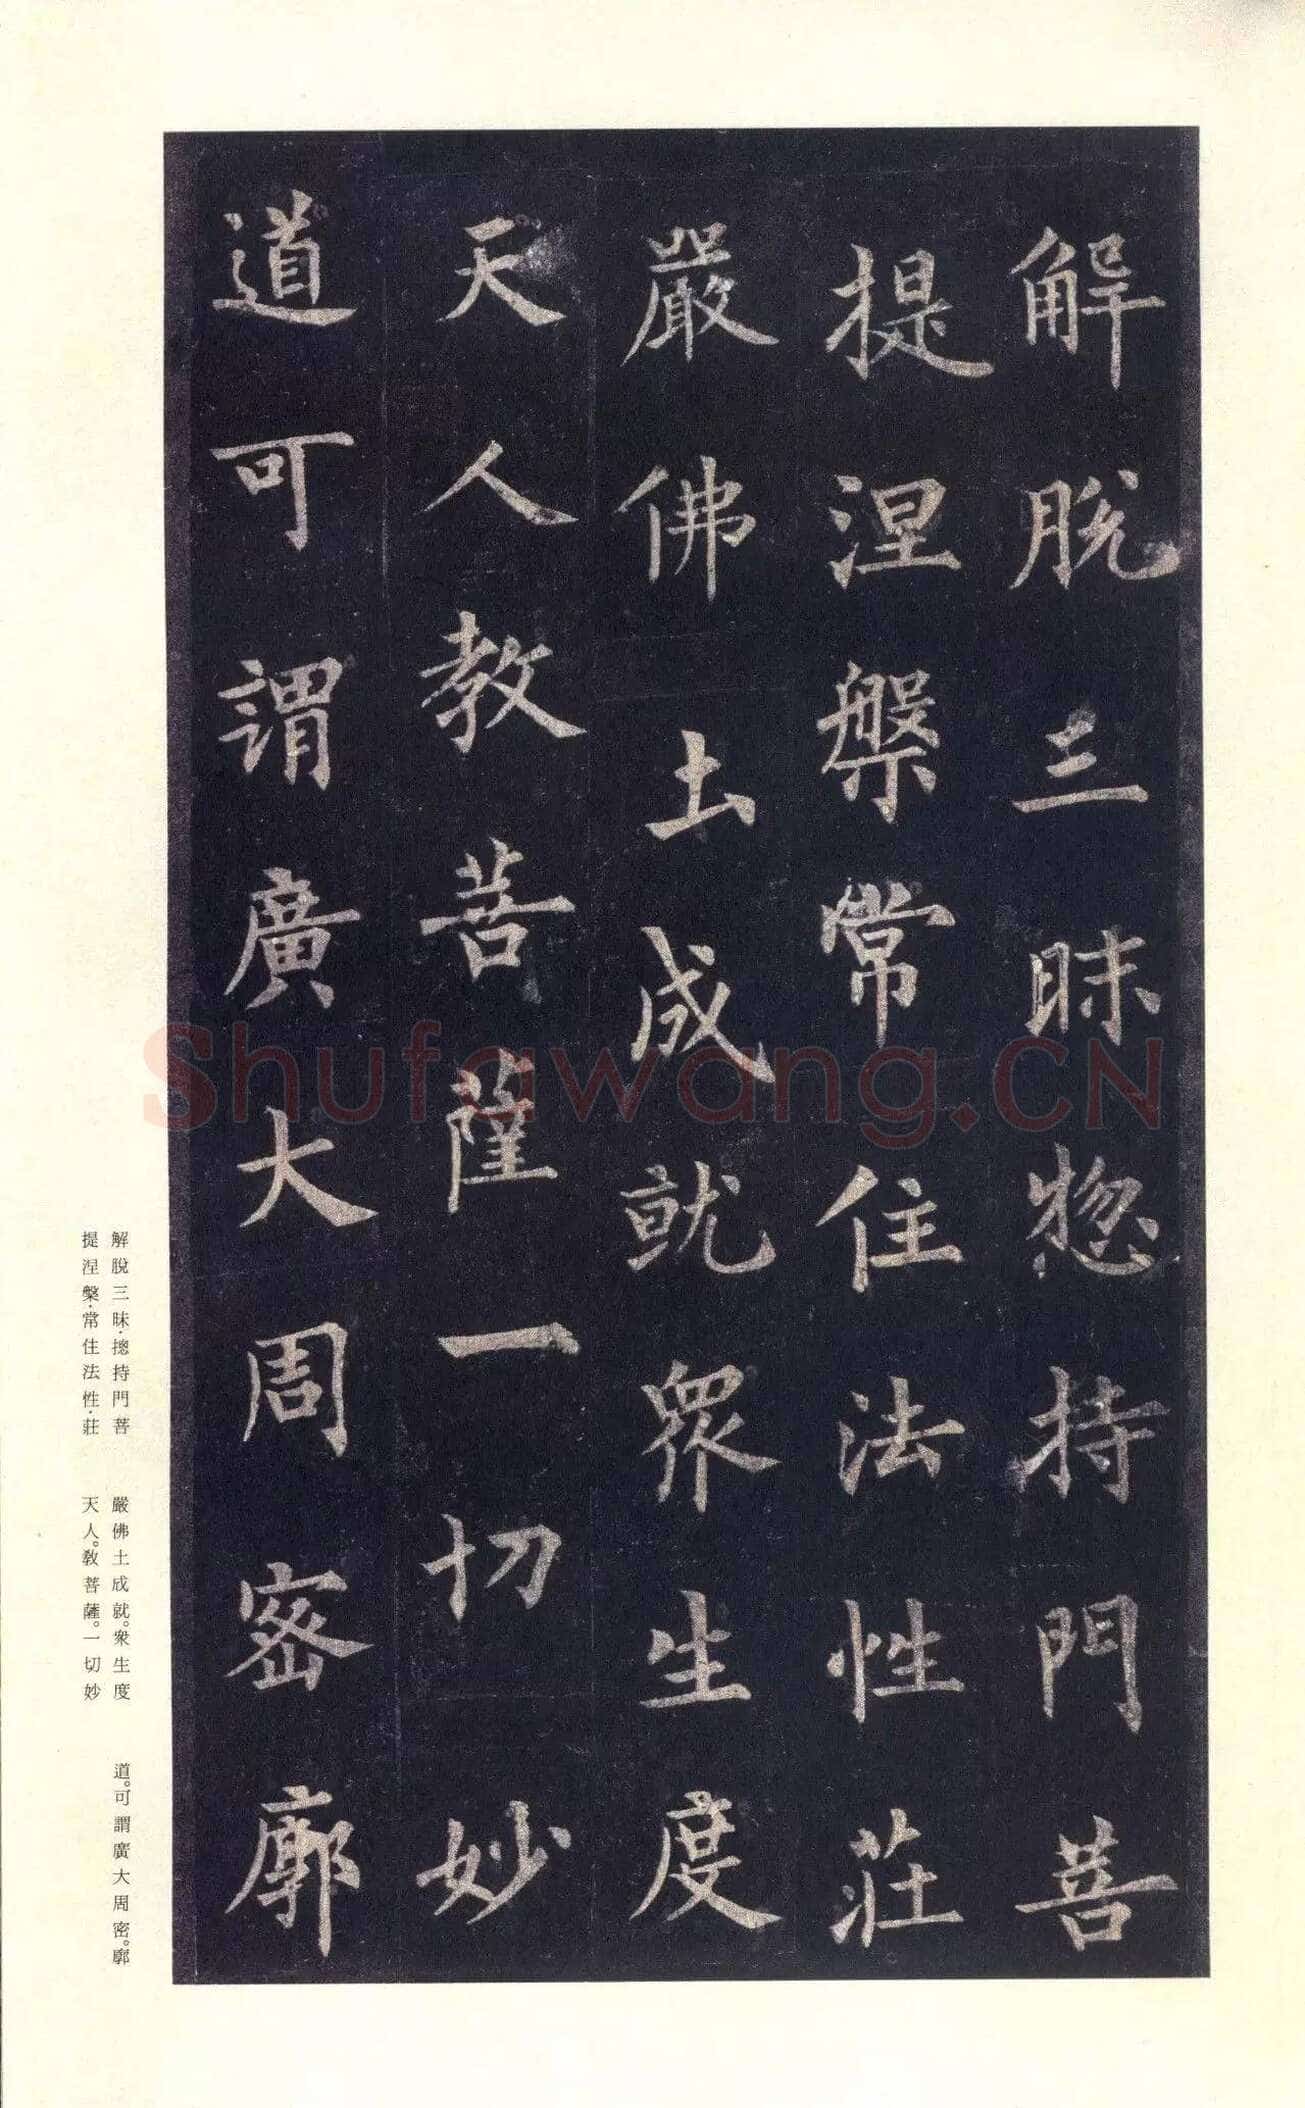 解脫三昧惣持門菩
提涅槃常住法性莊
嚴佛土成就眾生度
天人教菩薩一切妙
道可謂廣大周密廓
Shufawang.CN
解脫三昧·摠持門菩
提涅槃·常住法性·莊
嚴佛土成就。衆生度
天人。敎菩薩。一切妙
道。可謂廣大周密。廓